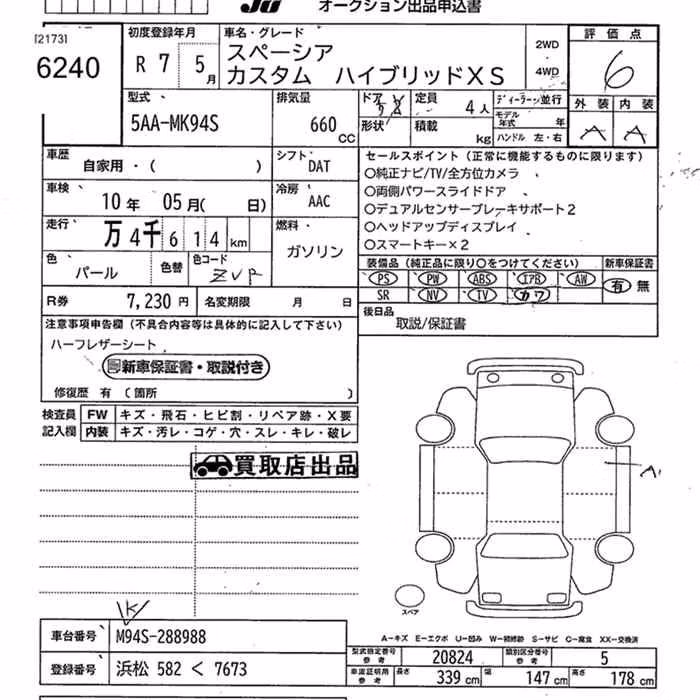 JU オークション出品申込書
[2173]
6240
初度登録年月 R 7 5月
車名・グレード
スペーシア
カスタム ハイブリッドXS
2WD
4WD
評価点
6
外装 内装
A A
型式
5AA-MK94S
排気量
660 CC
ドア
形状
定員 4人
積載 kg
ディーラー・並行
モデル年式 年
ハンドル 左・右
車歴 自家用・( )
シフト DAT
車検 10年 05月( 日)
冷房 AAC
走行 万4千614km
燃料 ガソリン
色 パール 色替 色コード ZVR
R券 7,230円 名変期限 月 日
セールスポイント(正常に機能するものに限ります)
○純正ナビ/TV/全方位カメラ
○両側パワースライドドア
○デュアルセンサーブレーキサポート2
○ヘッドアップディスプレイ
○スマートキー×2
装備品(純正品に限り○をつけてください) 新車保証書
PS PW ABS エアB AW 有 無
SR NV TV カワ
後日品
取説/保証書
注意事項申告欄(不具合内容等は具体的に記入して下さい)
ハーフレザーシート
新車保証書・取説付き
修復歴 有(箇所 )
検査員記入欄
FW キズ・飛石・ヒビ割・リペア跡・X要
内装 キズ・汚レ・コゲ・穴・スレ・キレ・破レ
買取店出品
A1
スペア
1K
車台番号 M94S-288988
登録番号 浜松 582 く 7673
A―キズ E―エクボ U―凹み W―補修跡 S―サビ C―腐食 XX―交換済
型式指定番号 参考 20824 類別区分番号 参考 5
車庫証明用 参考 長さ 339cm 幅 147cm 高さ 178cm